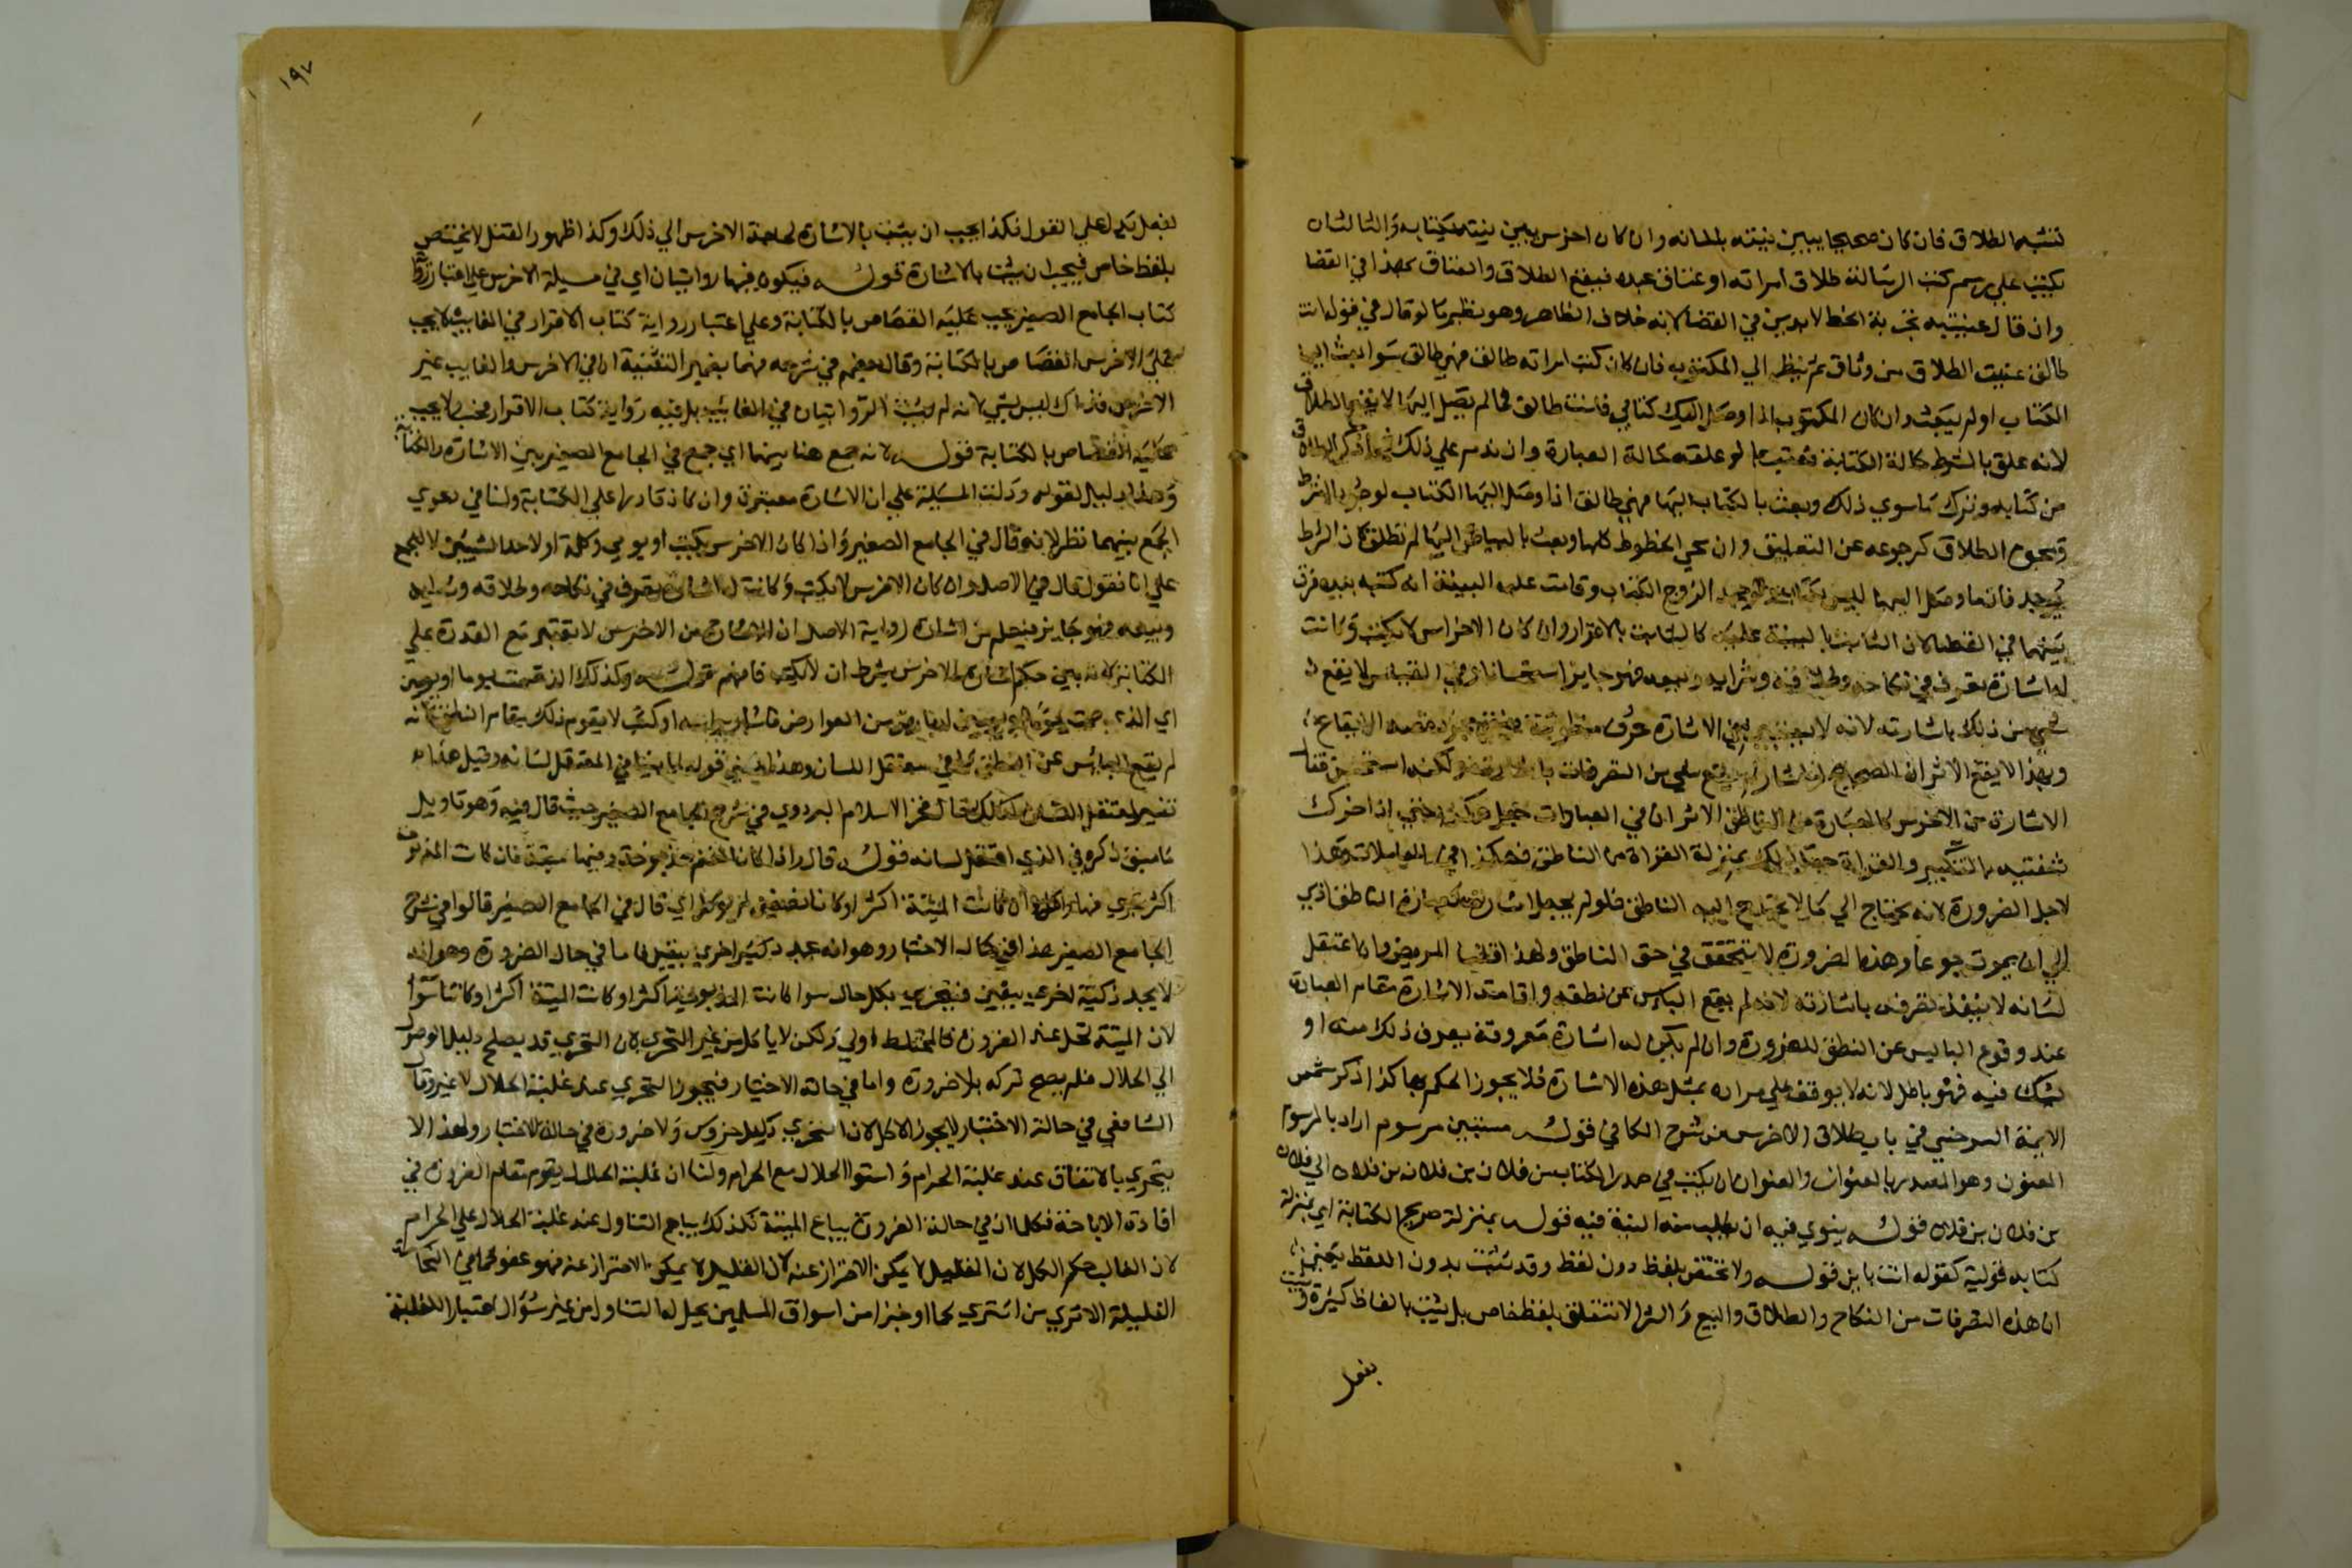 تنشبه الطلاق فان كان صحيحا يبين نيته بلسانه وان كان اخرس يبين نيته بكتابه والثالث ان
يكتب على رسم كتب الرسالة طلاق امراته او عتاق عبده فيقع الطلاق والعتاق بهذا في القضا
وان قال عنيت به تجربة الخط لا يدين في القضا لانه خلاف الظاهر وهو نظير ما لو قال في قوله انت
طالق عنيت الطلاق من وثاق ثم ينظر الي المكتوب فان كان كتب امراته طالق فهي طالق سوا بعث اليها
الكتاب او لم يبعث وان كان المكتوب اذا وصل اليك كتابي فانت طالق فما لم يصل اليها لا يقع الطلاق
لانه علق بالشرط حالة الكتابة فيعتبر بما لو علقه حالة العبارة وان ندم على ذلك فمحا ذكر الطلاق
من كتابه وترك ما سوي ذلك وبعث بالكتاب اليها فهي طالق اذا وصل اليها الكتاب لوجود الشرط
ومحو الطلاق كرجوعه عن التعليق وان محي الخطوط كلها وبعث بالبياض اليها لم تطلق لان الشرط
لم يوجد فان ما وصل اليها ليس بكتاب ولو جحد الزوج الكتاب وقامت عليه البينة انه كتبه بيده فرق
بينهما في القضا لان الثابت بالبينة عليه كالثابت بالاقرار وان كان الاخرس لا يكتب وكانت
له اشارة تعرف في نكاحه وطلاقه وشرايه وبيعه فهو جايز استحسانا وفي القياس لا يقع
شي من ذلك باشارته لانه لا يتبين في الاشارة حروف منظومة فيبقي مجرد قصده الايقاع
وبهذا لا يقع الا تري ان الصحيح لو اشار لم يقع شي من التصرفات باشارته ولكنه استحسن فقال
الاشارة من الاخرس كالعبارة من الناطق الا تري ان في العبادات جعل هكذا حتي اذا حرك
شفتيه بالتكبير والقراة جعل ذلك بمنزلة القراة من الناطق فهكذا في المعاملات وهذا
لاجل الضرورة لانه يحتاج الي ما لا يحتاج اليه الناطق فلو لم يجعل اشارته كعبارة الناطق ادي
الي ان يموت جوعا وهذه الضرورة لا يتحقق في حق الناطق ولهذا قلنا المريض وان اعتقل
لسانه لا ينفذ تصرفه باشارته لانه لم يقع الياس عن نطقه واقامة الاشارة مقام العبارة
عند وقوع الياس عن النطق للضرورة وان لم يكن له اشارة معروفة يعرف ذلك منه او
يشك فيه فهو باطل لانه لا يوقف علي مراده بمثل هذه الاشارة فلا يجوز الحكم بها كذا ذكر شمس
الايمة السرخسي في باب طلاق الاخرس من شرح الكافي قوله مستبين مرسوم اراد بالمرسوم
المعنون وهو المصدر بالعنوان والعنوان ان يكتب في صدر الكتاب من فلان بن فلان بن فلان الي فلان
بن فلان بن فلان قوله ينوي فيه اي طلب منه النية فيه قوله بمنزلة صريح الكتابة اي بمنزلة
كتابه قولية كقوله انت باين قوله ولا تختص بلفظ دون لفظ وقد تثبت بدون اللفظ يعني
ان هذه التصرفات من النكاح والطلاق والبيع والشرا لا تتعلق بلفظ خاص بل يثبت بالفاظ كثيرة ويثبت
بفعل
١٩٧
بفعل يدل على القول فكذا يجب ان يثبت بالاشارة لحاجة الاخرس الي ذلك وكذا ظهور القتل لا يختص
بلفظ خاص فيجب ان يثبت بالاشارة قوله فيكون فيهما روايتان اي في مسيلة الاخرس علي اعتبار رواية
كتاب الجامع الصغير يجب عليه القصاص بالكتابة وعلى اعتبار رواية كتاب الاقرار في الغايب لا يجب
على الاخرس القصاص بالكتابة وقال بعضهم في شرحه فيهما بضمير التثنية اي في الاخرس والغايب غير
الاخرس وذاك ليس بشي لانه لم يثبت الروايتان في الغايب بل فيه رواية كتاب الاقرار فحسب لا يجب
عليه القصاص بالكتابة قوله لانه جمع هنا بينهما اي جمع في الجامع الصغير بين الاشارة والكتابة
وهذا دليل لقوله ودلت المسيلة علي ان الاشارة معتبرة وان كان قادرا علي الكتابة ولنا في دعوي
الجمع بينهما نظر لانه قال في الجامع الصغير واذا كان الاخرس يكتب او يومي وكلمة او لاحد الشيين لا للجمع
علي انا نقول قال في الاصل وان كان الاخرس لا يكتب وكانت له اشارة تعرف في نكاحه وطلاقه وشرايه
وبيعه فهو جايز فيعلم من اشارة رواية الاصل ان الاشارة من الاخرس لا تعتبر مع القدرة علي
الكتابة لانه بين حكم اشارة الاخرس بشرط ان لا يكتب فافهم قوله وكذلك الذي صمت يوما او يومين
اي الذي صمت يوما او يومين لعارض من العوارض فاشار براسه او كتب لا يقوم ذلك مقام النطق لانه
لم يقع الياس عن النطق كما في معتقل اللسان وهذا يبتني قوله لما بينا في المعتقل لسانه وقيل هذا
تفسير لمعتقل اللسان كذلك قال فخر الاسلام البزدوي في شرح الجامع الصغير حيث قال فيه وهو تاويل
ما سبق ذكره في الذي اعتقل لسانه قوله قال واذا كان الغنم مذبوحة وفيها ميتة فان كانت المذبوحة
اكثر تحري فيها واكل وان كانت الميتة اكثر او كانا نصفين لم يوكل اي قال في الجامع الصغير قالوا في شرح
الجامع الصغير هذا في حال الاختيار وهو انه يجد ذكية اخري بيقين اما في حال الضرورة وهو انه
لا يجد ذكية اخري بيقين فيتحري بكل حال سوا كانت المذبوحة اكثر او كانت الميتة اكثر او كانتا سوا
لان الميتة تحل عند الضرورة فالمختلط اولي ولكن لا ياكل من غير التحري لان التحري قد يصلح دليلا لوصول
الي الحلال فلم يصح تركه بلا ضرورة واما في حالة الاختيار فيجوز التحري عند غلبة الحلال لا غير وقال
الشافعي في حالة الاختيار لا يجوز الاكل لان التحري دليل ضروري ولا ضرورة في حالة الاختيار ولهذا لا
يتحري بالاتفاق عند غلبة الحرام واستوا الحلال مع الحرام ولنا ان غلبة الحلال يقوم مقام الضرورة في
افادة الاباحة فكما ان في حالة الضرورة يباح الميتة فكذلك يباح التناول عند غلبة الحلال علي الحرام
لان الغالب حكم الكل لان القليل لا يمكن الاحتراز عنه لان القليل لا يمكن الاحتراز عنه فهو عفو كما في النجاسة
القليلة الا تري من اشتري لحما او خبزا من اسواق المسلمين يحل له التناول من غير سوال اعتبارا للغلبة